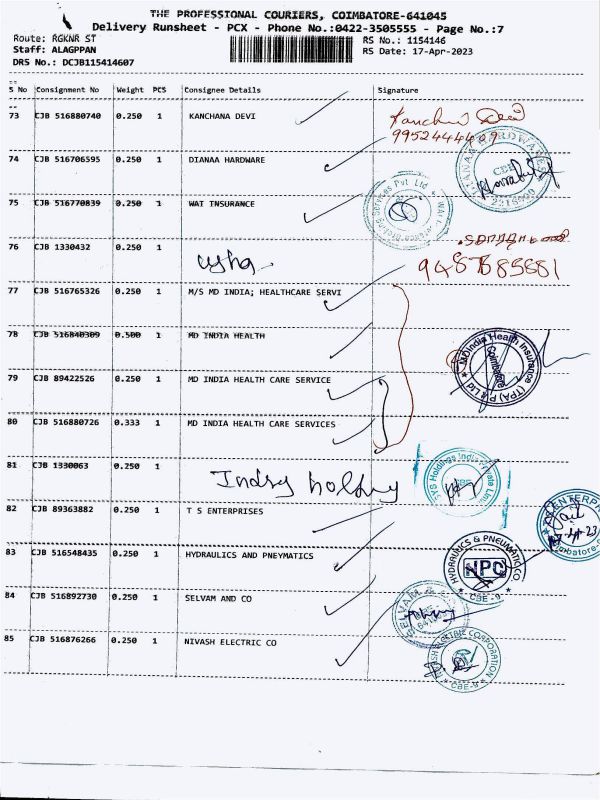 THE PROFESSIONAL COURIERS, COIMBATORE-641045
Delivery Runsheet - PCX - Phone No.:0422-3505555 - Page No.:7
Route: RGKNR ST RS No.: 1154146
Staff: ALAGPPAN RS Date: 17-Apr-2023
DRS No.: DCJB115414607
S No Consignment No Weight PCS Consignee Details Signature
73 CJB 516880740 0.250 1 KANCHANA DEVI
9952444409
74 CJB 516706595 0.250 1 DIANAA HARDWARE
75 CJB 516770839 0.250 1 WAT INSURANCE
76 CJB 1330432 0.250 1
77 CJB 516765326 0.250 1 M/S MD INDIA; HEALTHCARE SERVI
78 CJB 516840309 0.500 1 MD INDIA HEALTH
MDIndia Health Insurance (TPA) Pvt Ltd
Coimbatore
79 CJB 89422526 0.250 1 MD INDIA HEALTH CARE SERVICE
80 CJB 516880726 0.333 1 MD INDIA HEALTH CARE SERVICES
81 CJB 1330063 0.250 1
82 CJB 89363882 0.250 1 T S ENTERPRISES
83 CJB 516548435 0.250 1 HYDRAULICS AND PNEYMATICS
HYDRAULICS & PNEUMATIC CO
HPC
CBE-9
84 CJB 516892730 0.250 1 SELVAM AND CO
85 CJB 516876266 0.250 1 NIVASH ELECTRIC CO
CBE-9